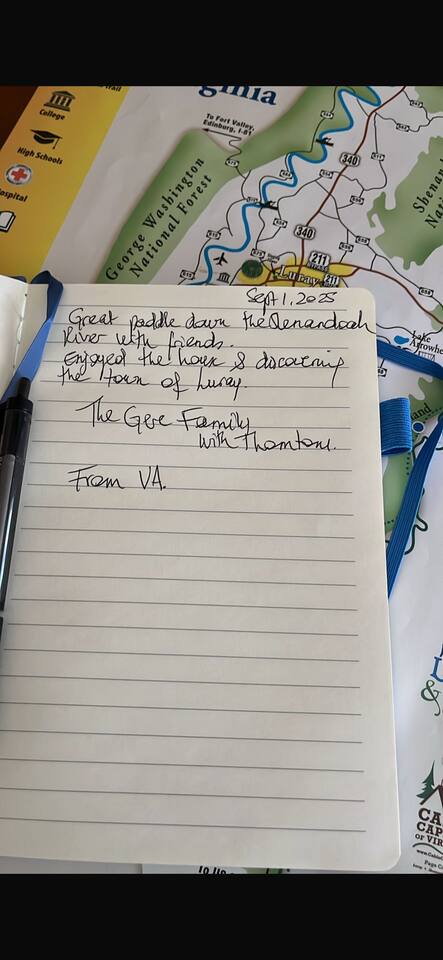 ginia
Trail
College
High Schools
Hospital
To Fort Valley,
Edinburg, I-81
George Washington
National Forest
340
340
211
211
Luray
Shenan
Nati
Lake
Arrowhe
Sept 1, 2025
Great paddle down the Shenandoah
River with friends.
Enjoyed the house & discovering
the town of Luray.
The Gere Family
with Thorntons.
From VA.
&
CA
CAP
OF VIR
Page C